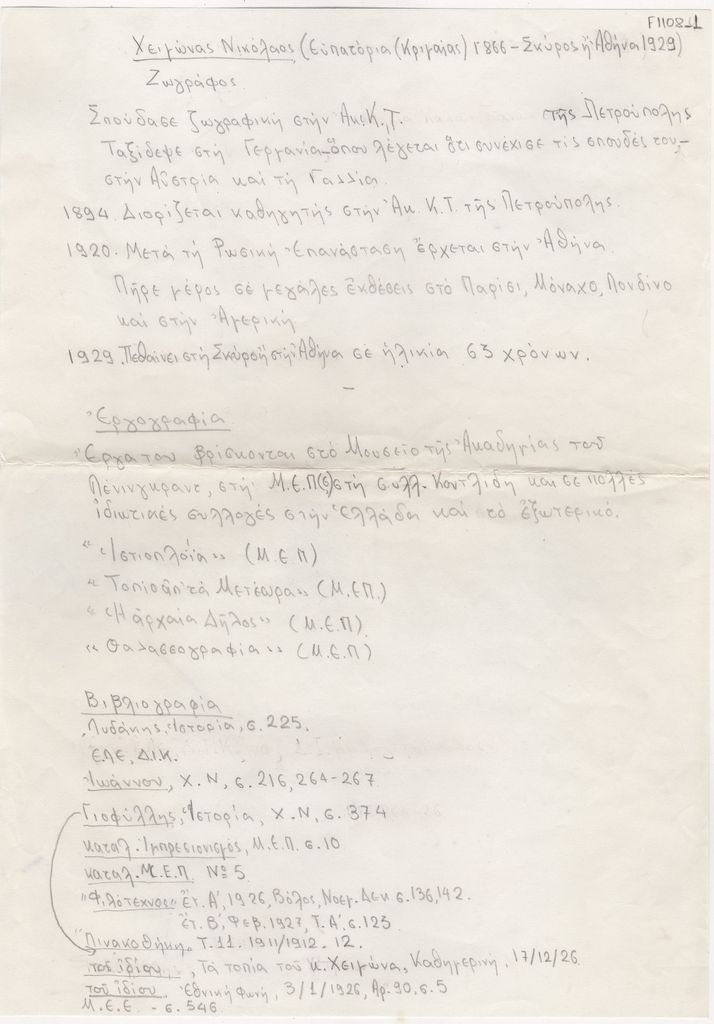 F1108_1
Χειμώνας Νικόλαος (Εὐπατόρια (Κριμαίας) 1866 - Σκύρος ἤ Ἀθήνα 1929)
Ζωγράφος
Σπούδασε ζωγραφική στήν Ακ. Κ. Τ. τῆς Πετρούπολης
Ταξίδεψε στή Γερμανία - ὅπου λέγεται ὅτι συνέχισε τίς σπουδές του, -
στήν Αὐστρία καί τή Γαλλία.
1894. Διορίζεται καθηγητής στήν Ἀκ. Κ.Τ. τῆς Πετρούπολης.
1920. Μετά τή Ρωσική Ἐπανάσταση ἔρχεται στήν Ἀθήνα.
Πῆρε μέρος σέ μεγάλες ἐκθέσεις στό Παρίσι, Μόναχο, Λονδίνο
καί στήν Ἀμερική
1929. Πεθαίνει στή Σκύρο ἤ στήν Ἀθήνα σέ ἡλικία 63 χρόνων.
Ἐργογραφία
Ἔργα του βρίσκονται στό Μουσεῖο τῆς Ἀκαδημίας τοῦ
Λένινγκραντ, στή Μ.Ε.Π(6) στή συλλ. Κουτλίδη καί σέ πολλές
ἰδιωτικές συλλογές στήν Ἑλλάδα καί τό ἐξωτερικό.
"Ἱστιοπλοΐα" (Μ.Ε.Π)
"Τοπίο ἀπ' τά Μετέωρα" (Μ.ΕΠ.)
"Ἡ ἀρχαία Δῆλος" (Μ.Ε.Π)
"Θαλασσογραφία" (Μ.Ε.Π)
Βιβλιογραφία
Λυδάκης, Ἱστορία, σ. 225.
ΕΛΕ, Δ.Ι.Κ.
Ἰωάννου, Χ.Ν, σ. 216, 264-267
Γιοφύλλης, Ἱστορία, Χ.Ν, σ. 374
καταλ. Ἰμπρεσιονισμός, Μ.Ε.Π. σ. 10
καταλ. Μ.Ε.Π. Νο 5
"Φιλότεχνος" Ἔτ. Α', 1926, Βόλος, Νοεμ. Δεκ σ. 136, 142.
ἔτ. Β', Φεβ. 1927, Τ. Α', σ. 125
"Πινακοθήκη, Τ. 11. 1911/1912. 12.
τοῦ ἰδίου, Τά τοπία τοῦ κ. Χειμώνα, Καθημερινή, 17/12/26
τοῦ ἰδίου, Ἐθνική Φωνή, 3/1/1926, Αρ. 90, σ. 5
Μ.Ε.Ε. - σ. 546